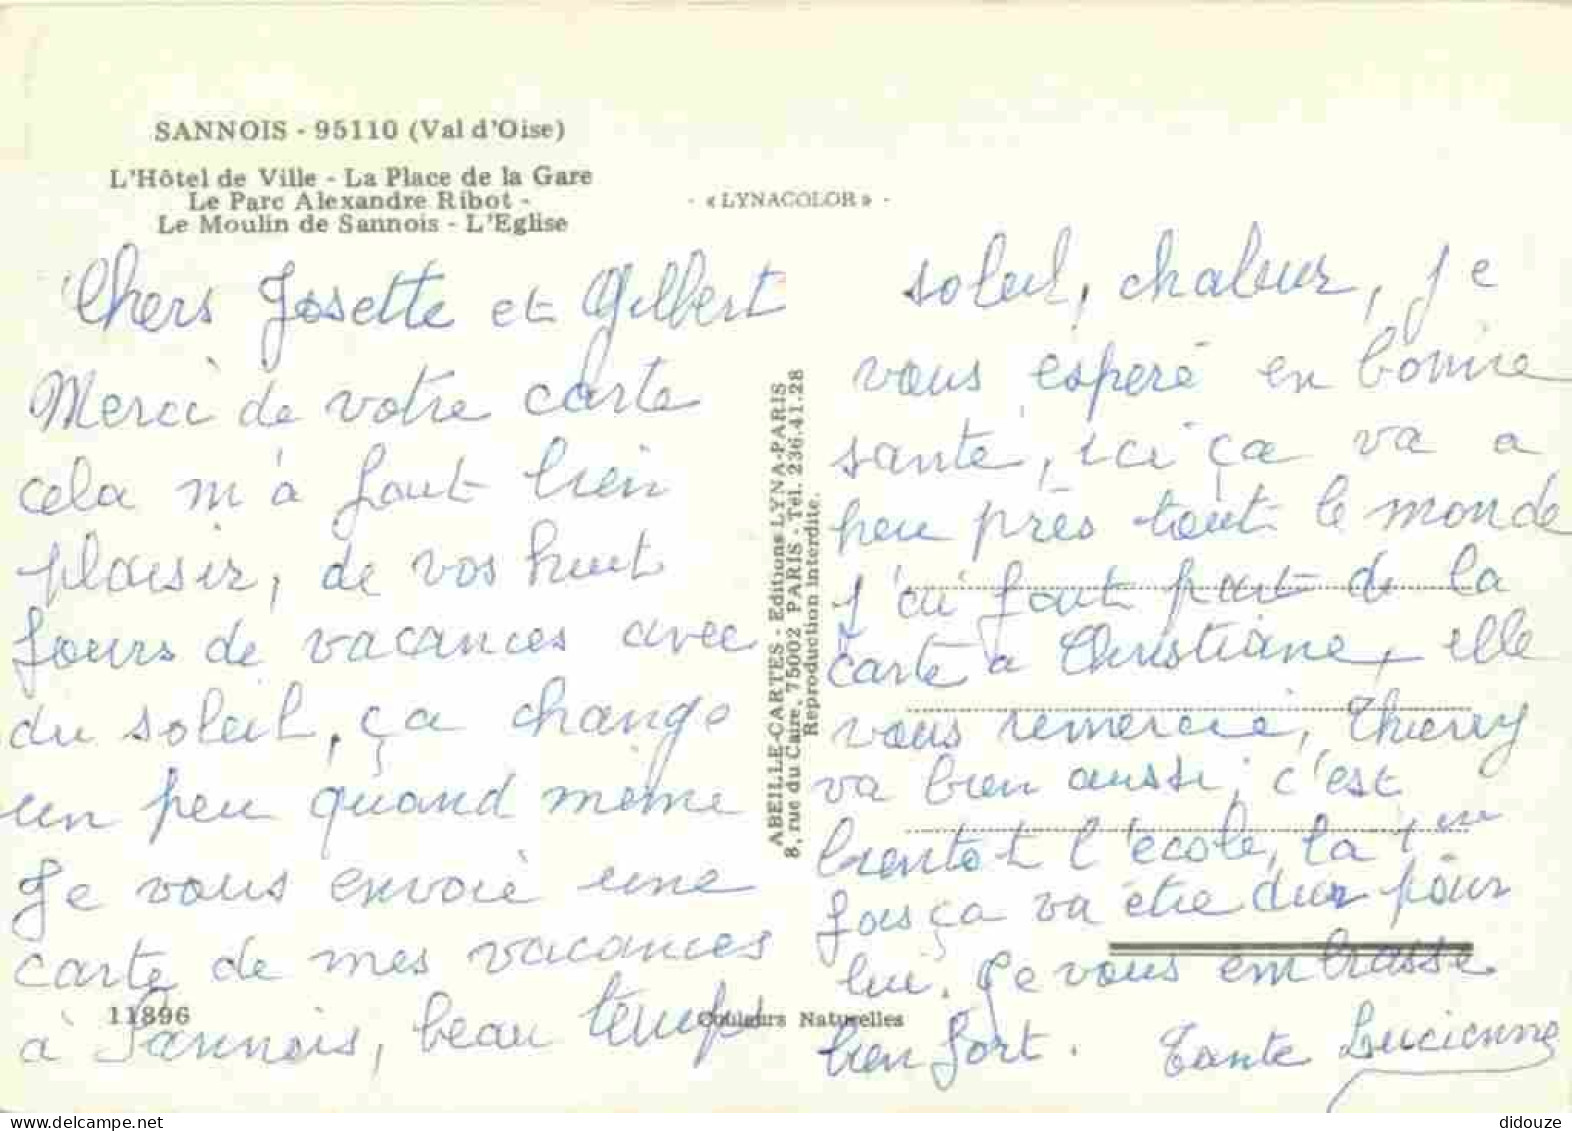 SANNOIS - 95110 (Val d'Oise)
L'Hôtel de Ville - La Place de la Gare
Le Parc Alexandre Ribot -
Le Moulin de Sannois - L'Eglise
- « LYNACOLOR » -
Chers Josette et Gilbert
Merci de votre carte
cela m'a fait bien
plaisir, de vos huit
jours de vacances avec
du soleil, ça change
un peu quand même
Je vous envoie une
carte de mes vacances
à Sannois, beau temps
11896
Couleurs Naturelles
ABEILLE-CARTES - Editions LYNA-PARIS
8, rue du Caire, 75002 PARIS - Tél. 236.41.28
Reproduction interdite.
soleil, chaleur, je
vous espère en bonne
santé, ici ça va a
peu près tout le monde
j'ai fait part de la
carte a Christiane, elle
vous remercie, Thierry
va bien aussi, c'est
bientot l'école, la 1ère
fois ça va être dur pour
lui. Je vous embrasse
bien fort. Tante Lucienne
didouze